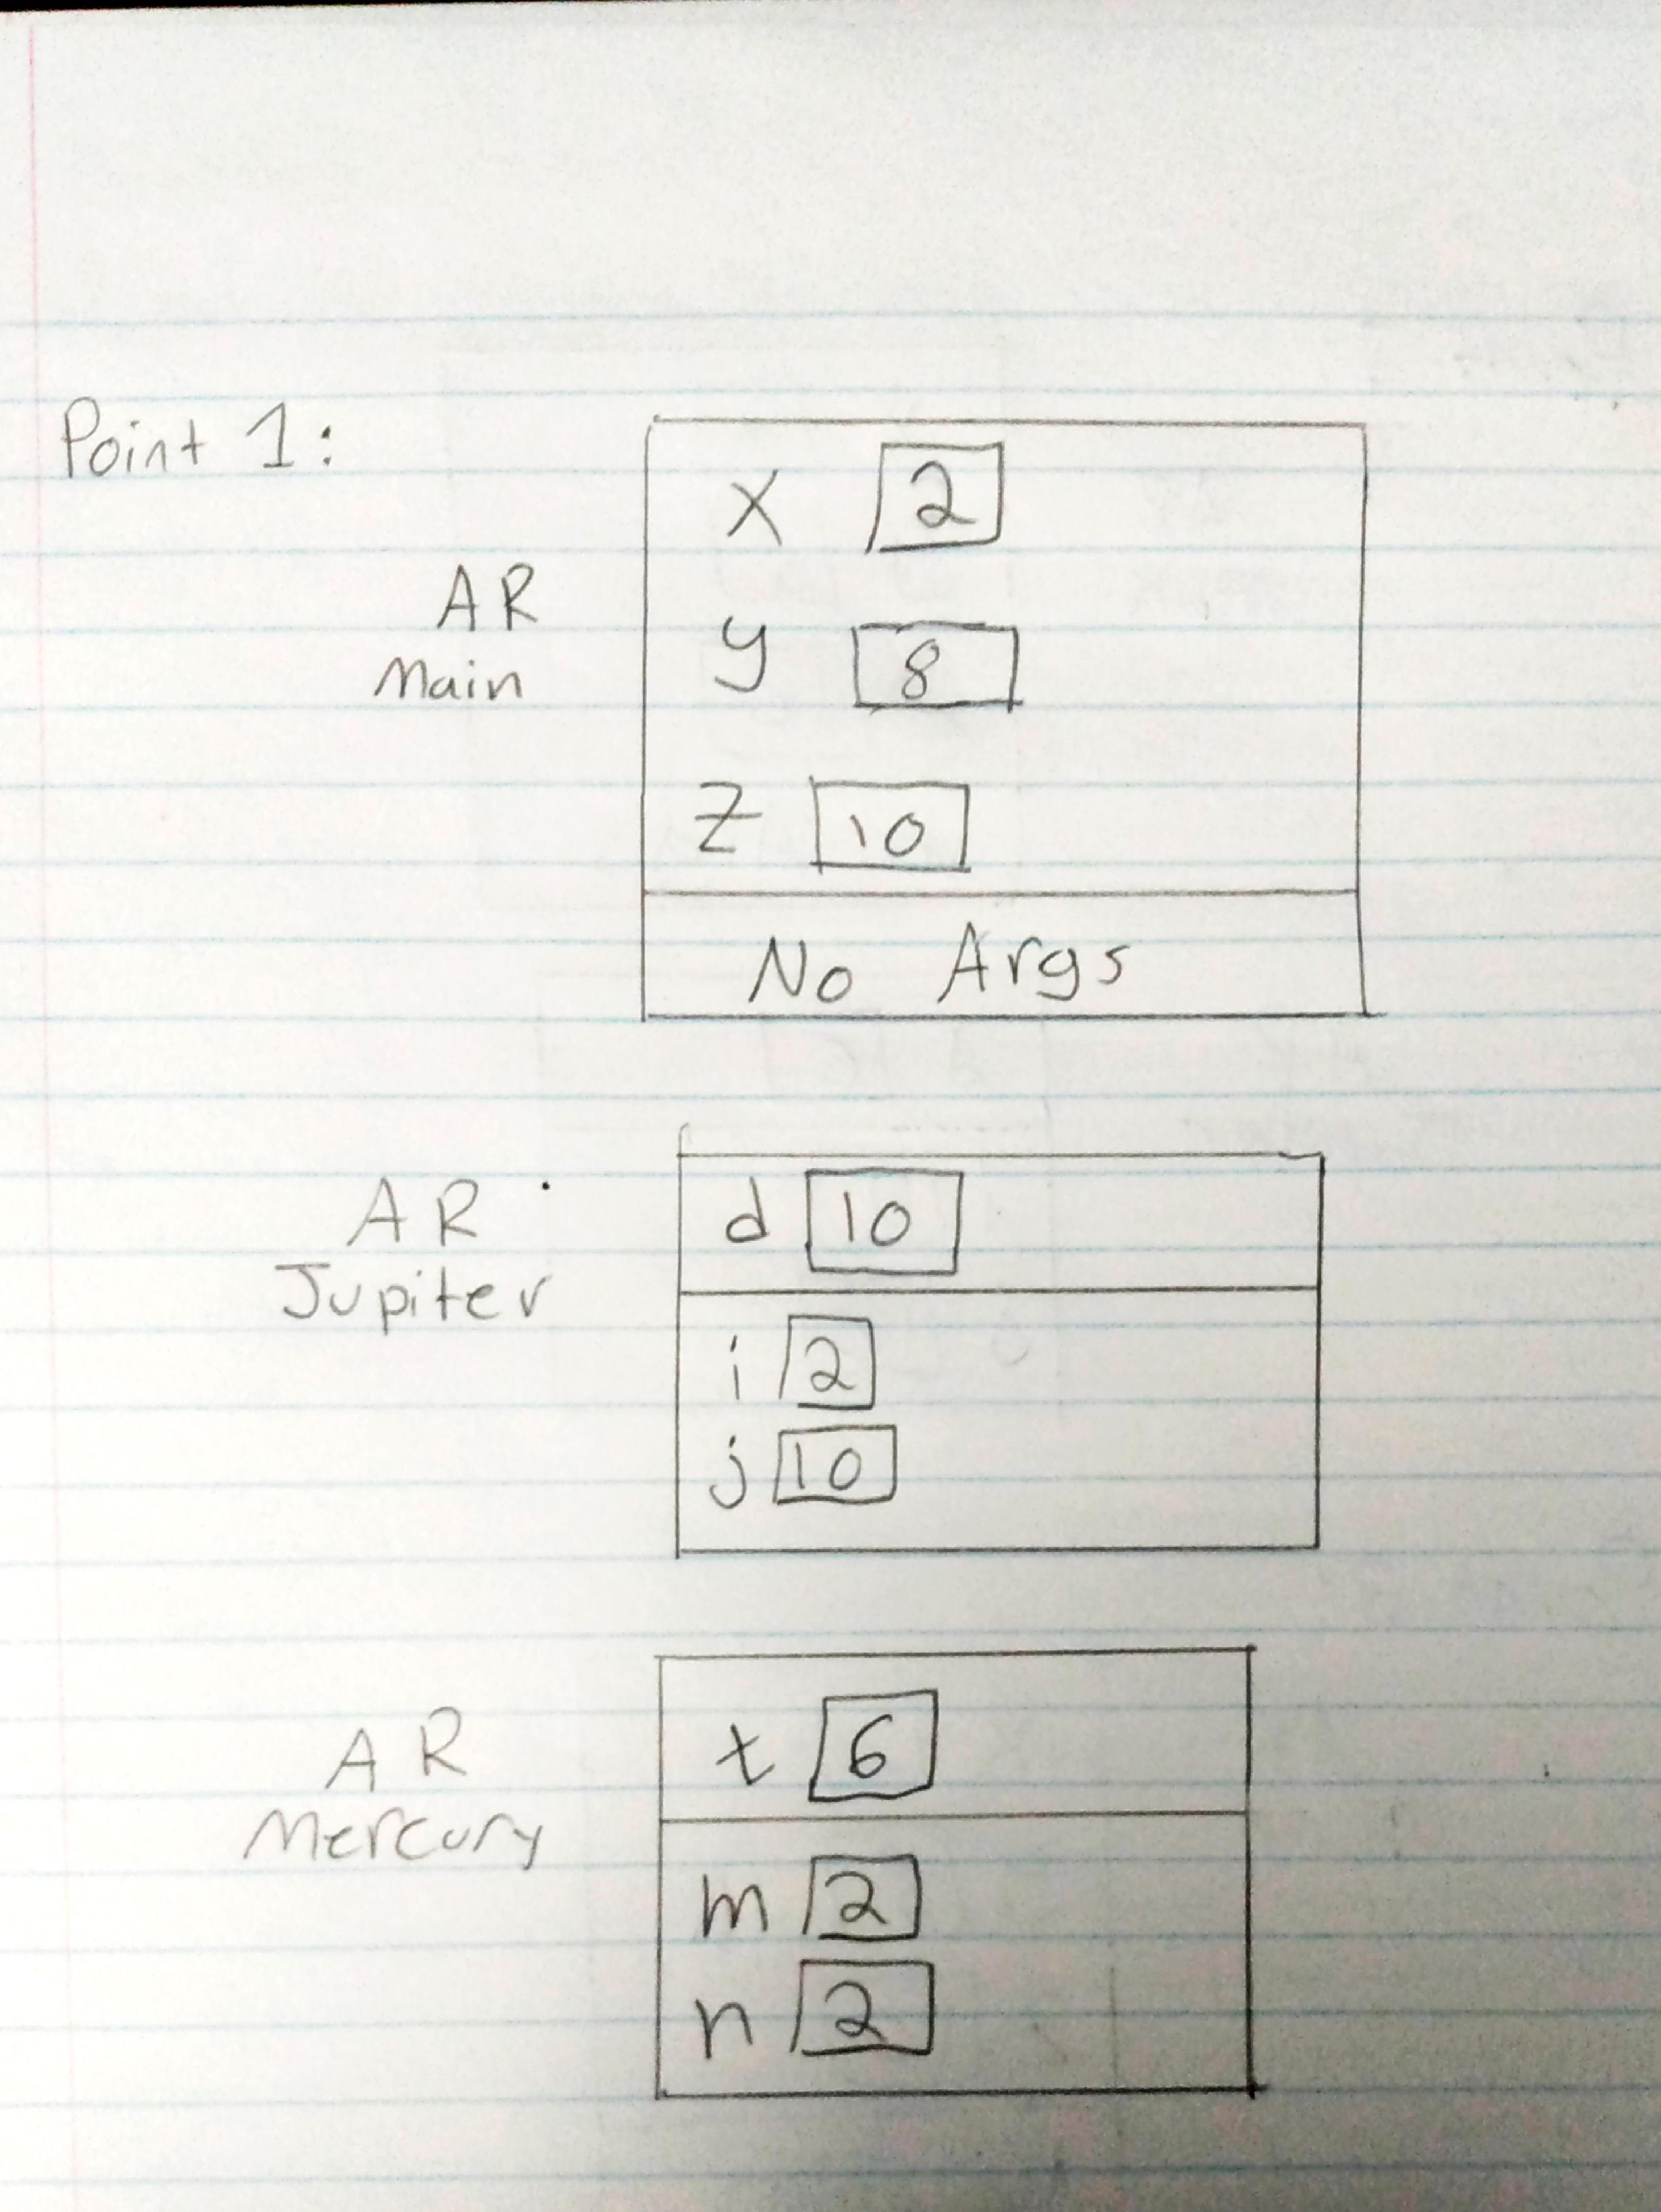 Point 1:
AR
Main
x 2
y 8
z 10
No Args
AR
Jupiter
d 10
i 2
j 10
AR
Mercury
t 6
m 2
n 2